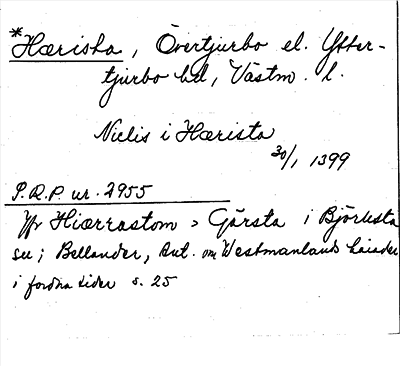 *Hærista, Övertjurbo el. Ytter-
tjurbo hd, Västm. l.
Niclis i Hærista
30/1 1399
S.R.P. nr. 2955
Jfr Hiærrastom > Gärsta i Björksta
sn; Bellander, Ant. om Westmanlands härader
i fordna tider s. 25